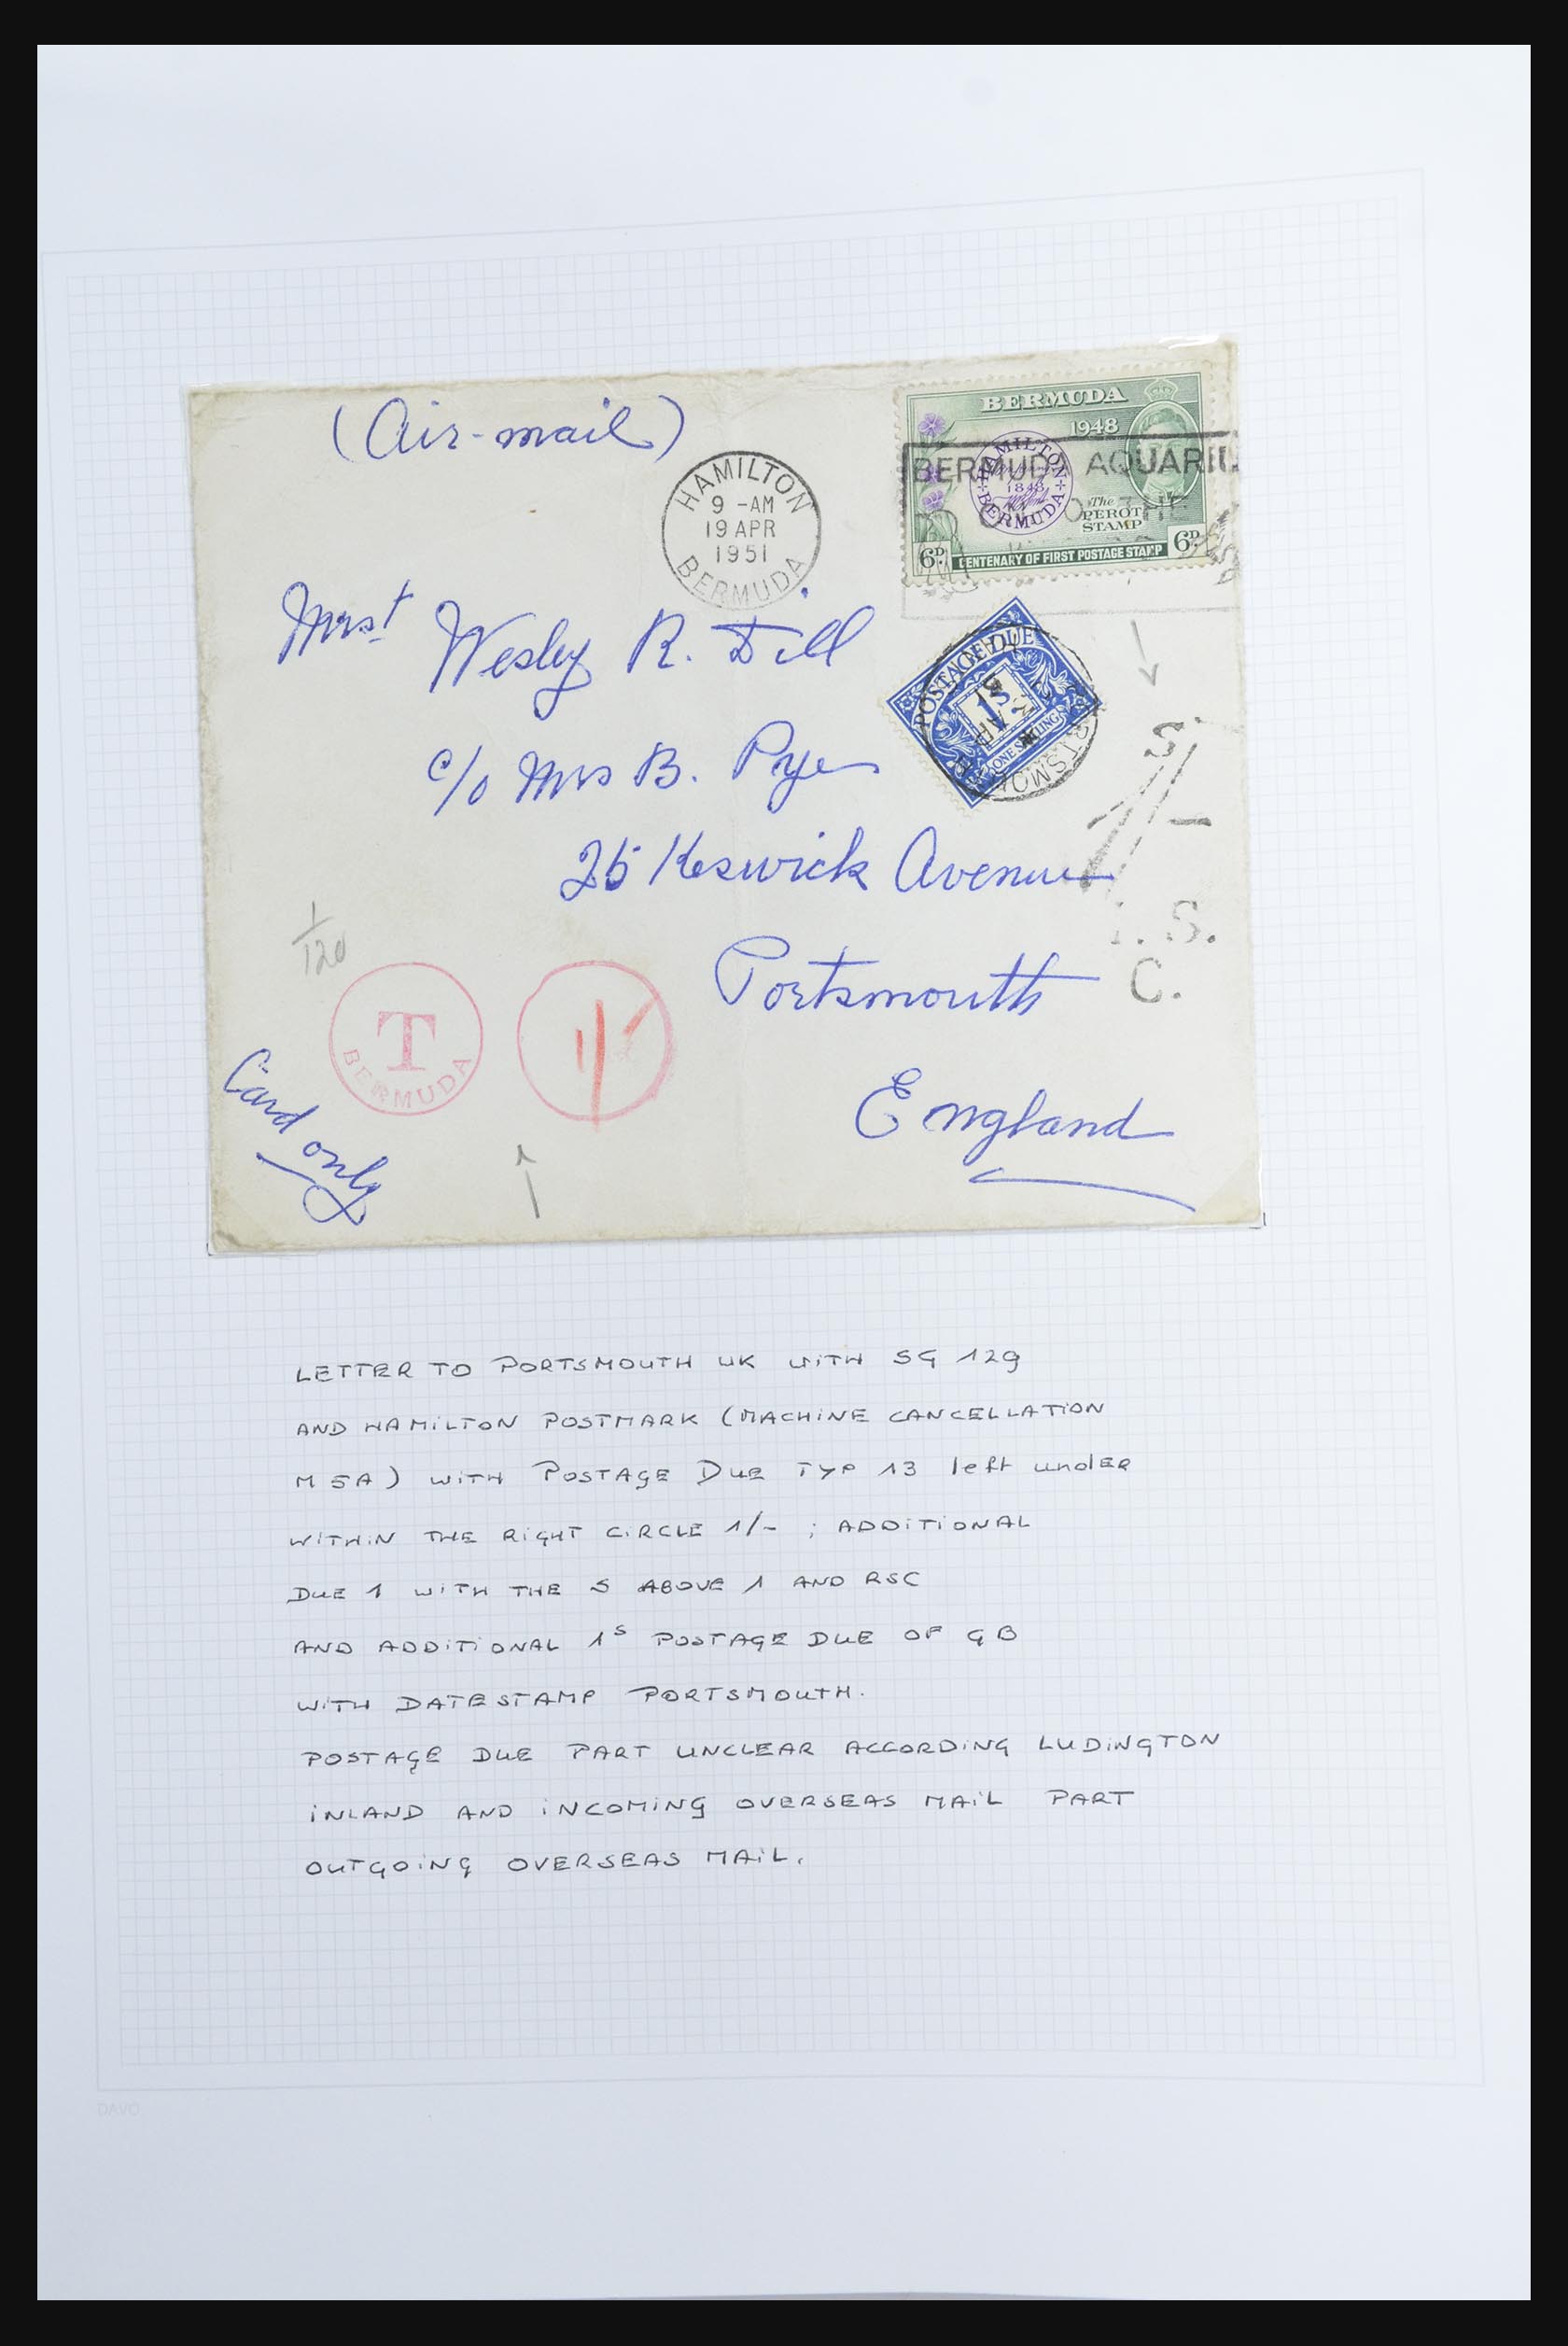 (Air-mail)
BERMUDA
1948
HAMILTON
9 -AM
19 APR
1951
BERMUDA
BERMUDA AQUARIU
HAMILTON
1848
BERMUDA
The
PEROT
STAMP
6D.
CENTENARY OF FIRST POSTAGE STAMP
6D.
Wesley R. Dill
POSTAGE DUE
1S
ONE SHILLING
c/o Mrs B. Pye
S
1/-
25 Keswick Avenue
S.
C.
1/120
Portsmouth
T
BERMUDA
1/-
England
Card only
LETTER TO PORTSMOUTH UK WITH SG 129
AND HAMILTON POSTMARK (MACHINE CANCELLATION
M 5A) WITH POSTAGE DUE TYP 13 left under
WITHIN THE RIGHT CIRCLE 1/- ; ADDITIONAL
DUE 1 WITH THE S ABOVE 1 AND RSC
AND ADDITIONAL 1S POSTAGE DUE OF GB
WITH DATESTAMP PORTSMOUTH.
POSTAGE DUE PART UNCLEAR ACCORDING LUDINGTON
INLAND AND INCOMING OVERSEAS MAIL PART
OUTGOING OVERSEAS MAIL.
DAVO